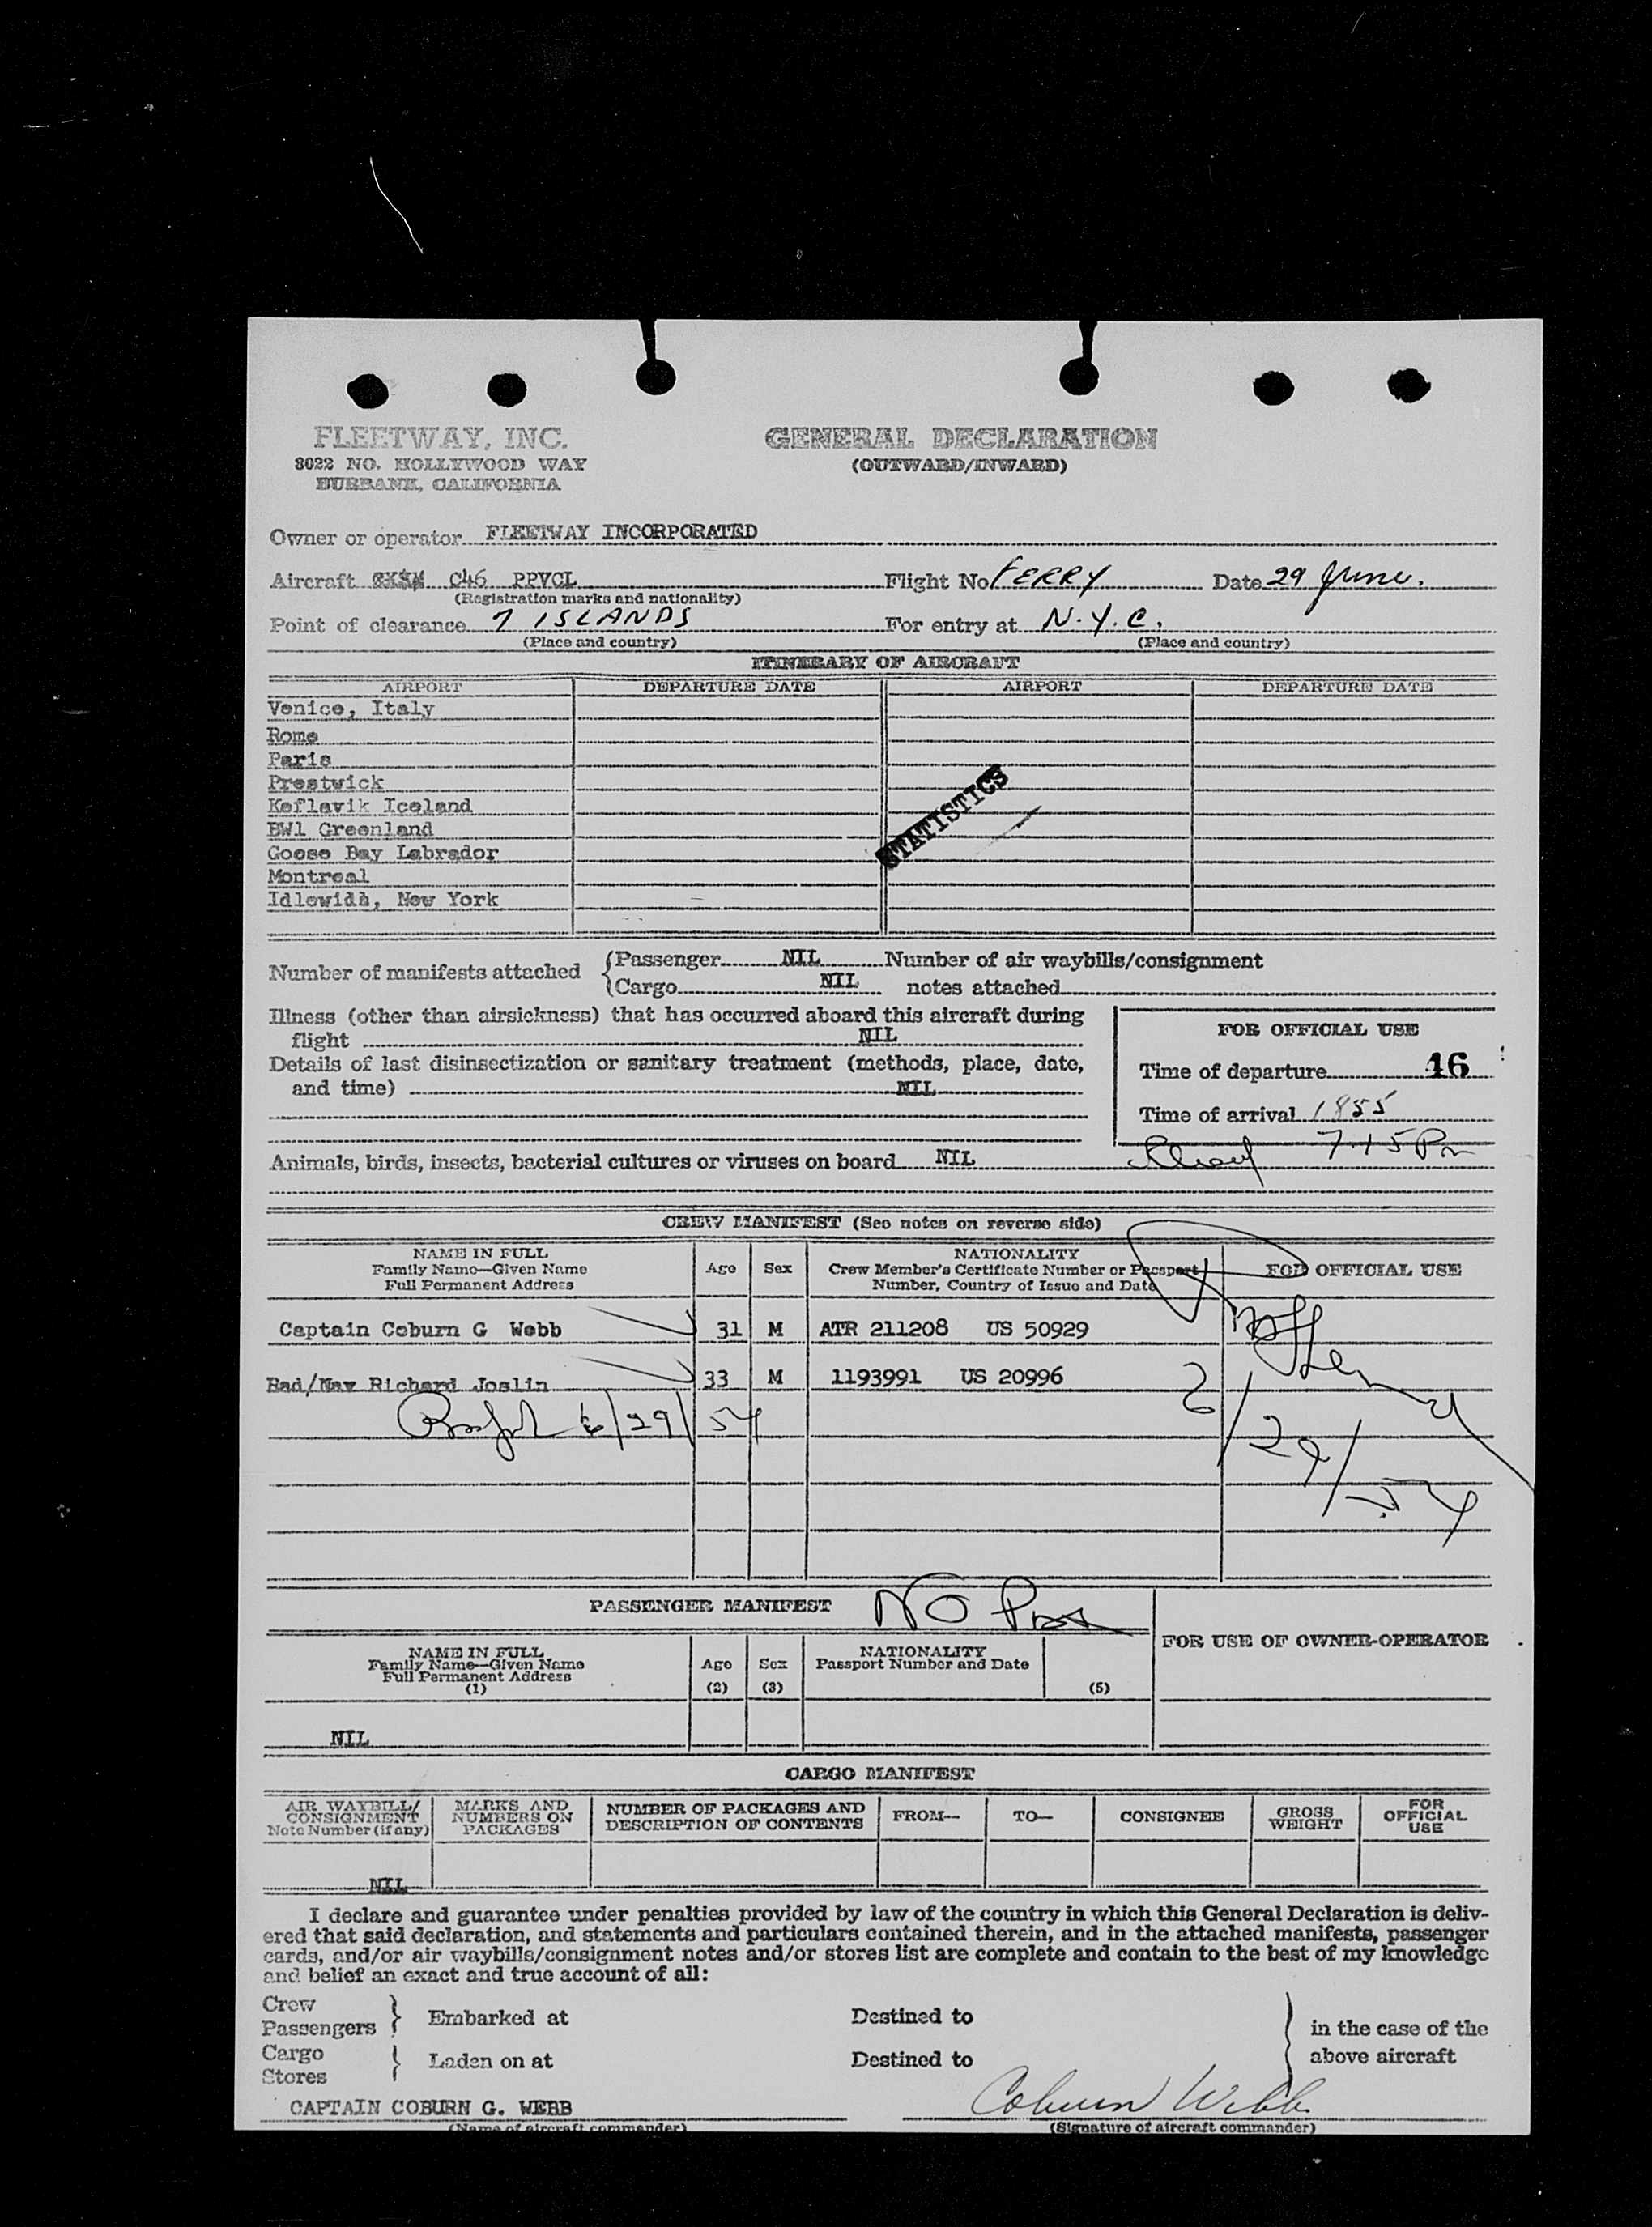 FLEETWAY, INC.
3022 NO. HOLLYWOOD WAY
BURBANK, CALIFORNIA
GENERAL DECLARATION
(OUTWARD/INWARD)
Owner or operator FLEETWAY INCORPORATED
Aircraft C46 PPVCL Flight No FERRY Date 29 June.
(Registration marks and nationality)
Point of clearance 7 ISLANDS For entry at N.Y.C.
(Place and country) (Place and country)
ITINERARY OF AIRCRAFT
AIRPORT DEPARTURE DATE AIRPORT DEPARTURE DATE
Venice, Italy
Rome
Paris
Prestwick
Keflavik Iceland
BW1 Greenland
Goose Bay Labrador
Montreal
Idlewidh, New York
STATISTICS
Number of manifests attached Passenger NIL Number of air waybills/consignment
Cargo NIL notes attached
Illness (other than airsickness) that has occurred aboard this aircraft during
flight NIL
Details of last disinsectization or sanitary treatment (methods, place, date,
and time) NIL
FOR OFFICIAL USE
Time of departure 16
Time of arrival 1855
7.15 Pm
Animals, birds, insects, bacterial cultures or viruses on board NIL
CREW MANIFEST (See notes on reverse side)
NAME IN FULL
Family Name—Given Name
Full Permanent Address
Age Sex
NATIONALITY
Crew Member's Certificate Number or Passport
Number, Country of Issue and Date
FOR OFFICIAL USE
Captain Coburn G Webb 31 M ATR 211208 US 50929
Rad/Nav Richard Joslin 33 M 1193991 US 20996
6/29/54
6/29/54
PASSENGER MANIFEST No Pax
FOR USE OF OWNER-OPERATOR
NAME IN FULL
Family Name—Given Name
Full Permanent Address
(1)
Age
(2)
Sex
(3)
NATIONALITY
Passport Number and Date
(5)
NIL
CARGO MANIFEST
AIR WAYBILL/
CONSIGNMENT
Note Number (if any)
MARKS AND
NUMBERS ON
PACKAGES
NUMBER OF PACKAGES AND
DESCRIPTION OF CONTENTS
FROM—
TO—
CONSIGNEE
GROSS
WEIGHT
FOR
OFFICIAL
USE
NIL
I declare and guarantee under penalties provided by law of the country in which this General Declaration is deliv-
ered that said declaration, and statements and particulars contained therein, and in the attached manifests, passenger
cards, and/or air waybills/consignment notes and/or stores list are complete and contain to the best of my knowledge
and belief an exact and true account of all:
Crew
Passengers Embarked at Destined to in the case of the
Cargo Laden on at Destined to above aircraft
Stores
CAPTAIN COBURN G. WEBB Coburn Webb
(Name of aircraft commander) (Signature of aircraft commander)